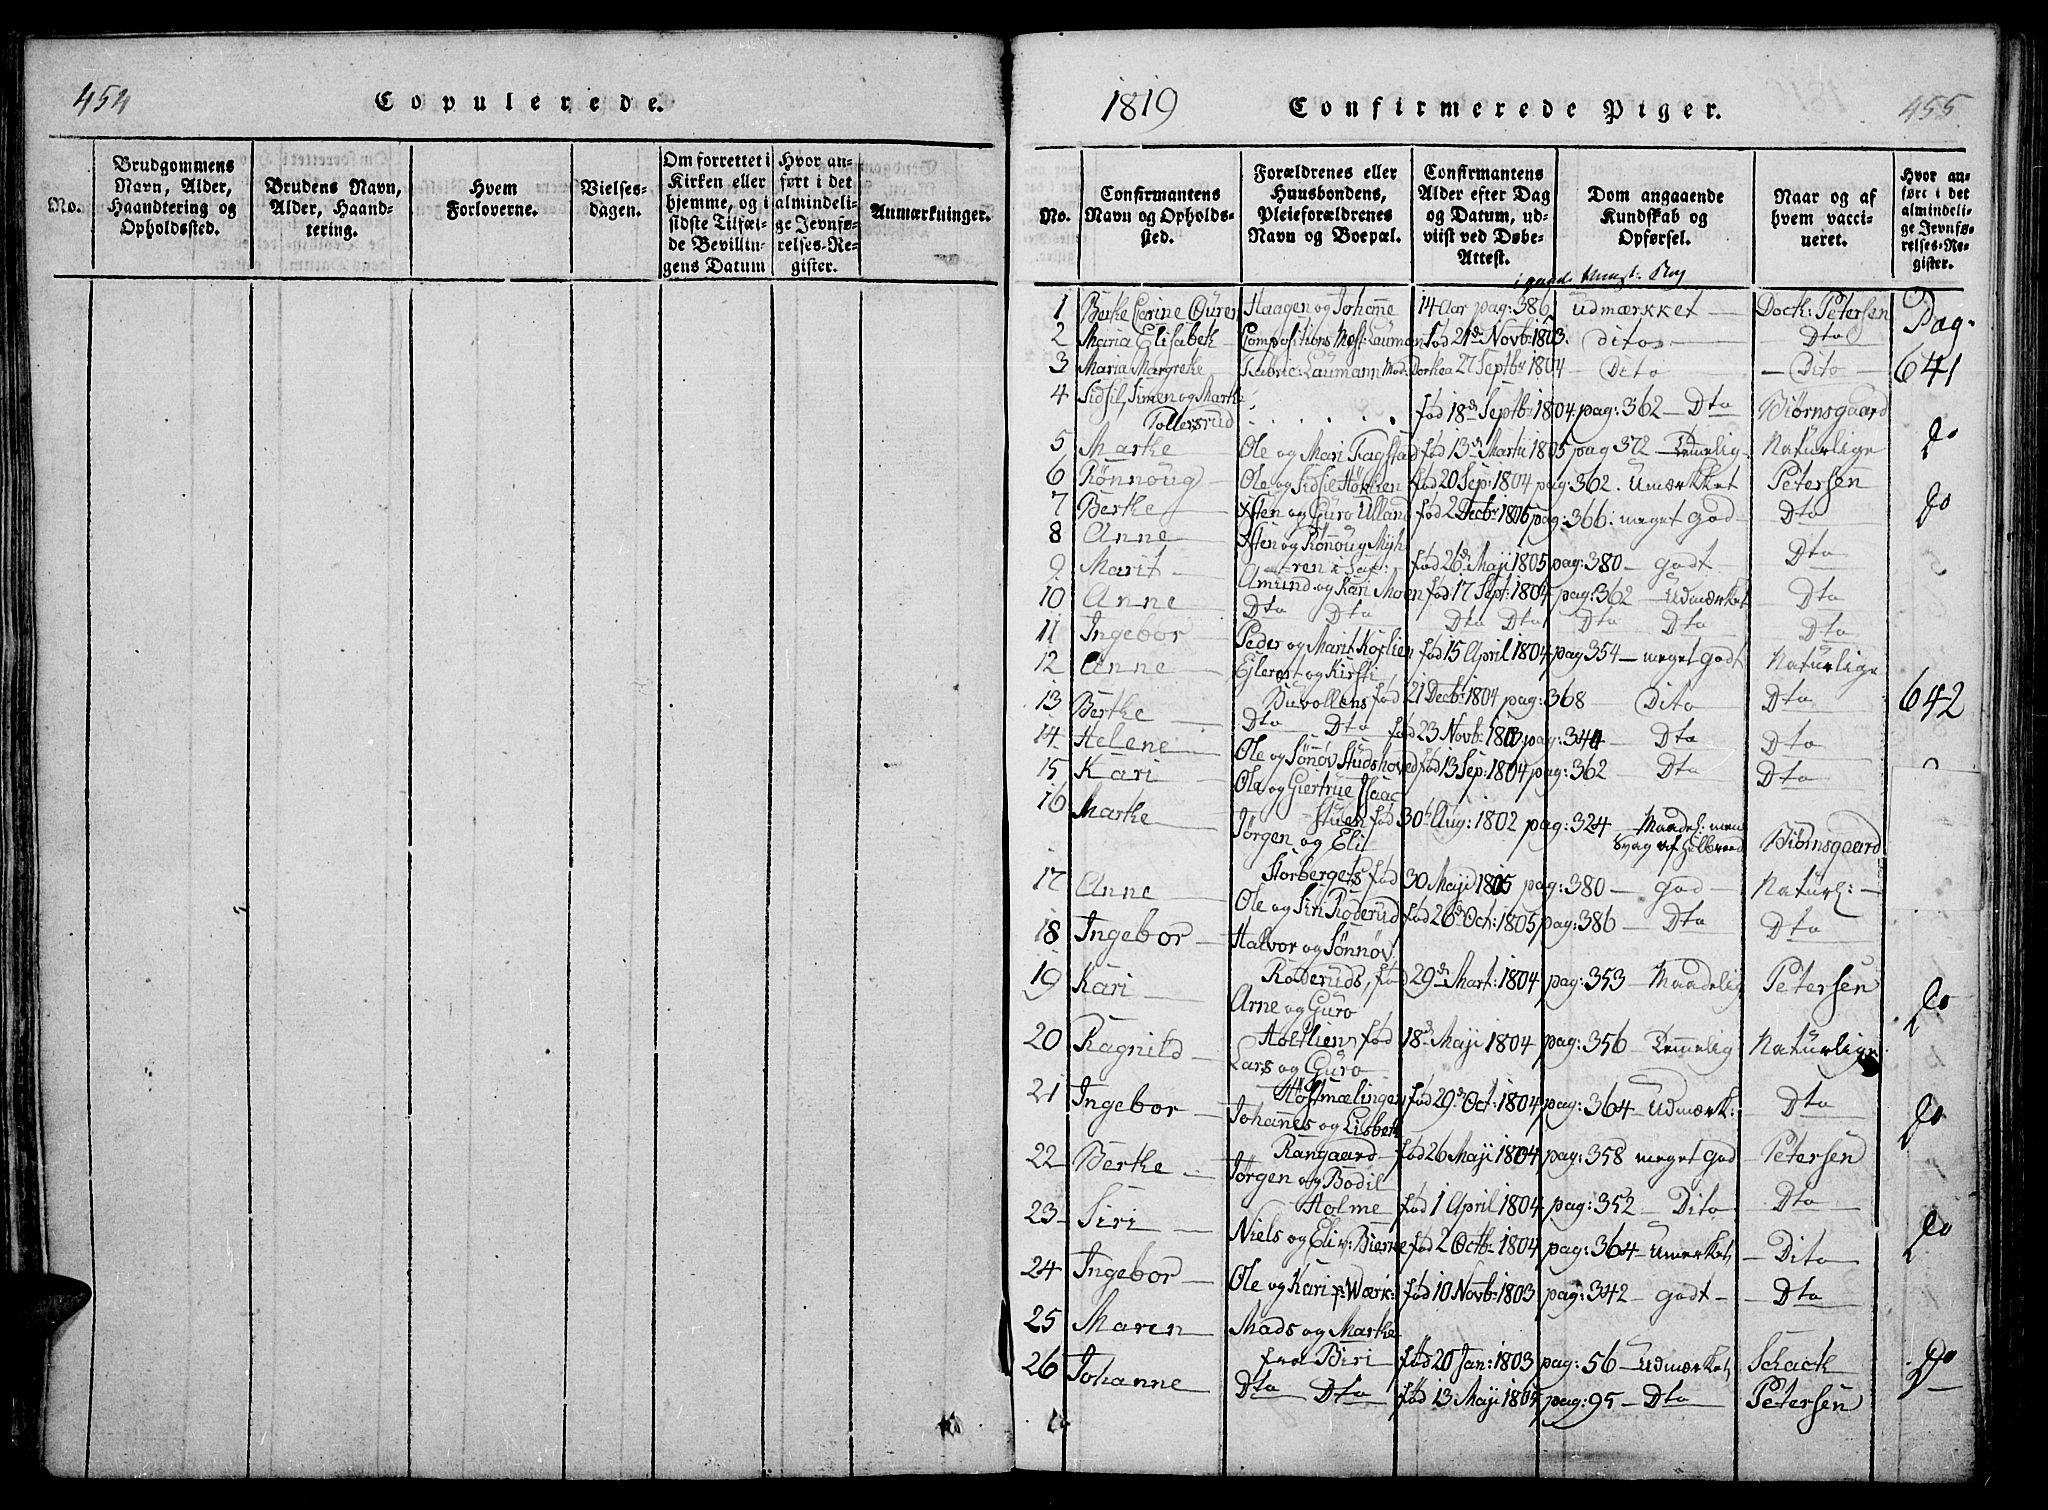 454
Copulerede.
No.
Brudgommens
Navn, Alder,
Haandtering og
Opholdssted.
Brudens Navn,
Alder, Haand-
tering.
Hvem
Forloverne.
Vielses-
dagen.
Om forrettet i
Kirken eller
hjemme, og i
sidste Tilfæl-
de Bevillin-
gens Datum
Hvor an-
ført i det
almindeli-
ge Jevnfø-
relses-Re-
gister.
Anmærkninger.
1819
Confirmerede Piger.
455
No.
Confirmantens
Navn og Opholds-
sted.
Forældrenes eller
Huusbondens,
Pleieforældrenes
Navn og Boepæl.
Confirmantens
Alder efter Dag
og Datum, ud-
viist ved Døbe-
Attest.
Dom angaaende
Kundskab og
Opførsel.
Naar og af
hvem vacci-
neret.
Hvor an-
ført i det
almindeli-
ge Jevnfø-
relses-Re-
gister.
1 Berthe Øuren Haagen og Johanne 14 Aar pag: 386 udmærkket Doct: Petersen Pag.
2 Maria Elisabeth Compositions Laumann fød 21de Novbr 1803. ditos Dto
3 Maria Margrethe Laumann Dorthea 27 Septbr 1804 Dito Dito 641
4 Sidsil, Simen og Marthe
Tollersrud fød 18de Septbr 1804 pag: 362 Dto Biørnsgaard
5 Marthe Ole og Mari Fagstad fød 13de Martii 1805 pag 372 Temmelig Naturlige do
6 Rønnoug Ole og Sidsil fød 20 Sep: 1804 pag: 362. Umærkket Petersen
7 Berthe Østen og Guro Ulland fød 2 Decbr pag: 366: meget god Dto do
8 Anne Østen og Rønnoug Myh-
ren fød 26de Maji 1805 pag: 380 godt Dto
9 Marit Amund og Kari Moen fød 17 Sept: 1804 pag: 362 Udmærket Dto
10 Anne Dto Dto Dto Dto Dto Dto Dto
11 Ingebor Peder og Marit fød 15 April 1804 pag 354 meget godt Naturlige
12 Anne og Kirsti
fød 21 Decbr: 1804 pag: 368 Dito Dto 642
13 Berthe Dto Dto fød 23 Novb: pag: 344 Dto Dto
14 Helene Ole og Sønnøv Studshoved fød 13 Sep: 1804 pag: 362 Dto Dto
15 Kari Ole og Giertrue Isaac
stuen fød 30te Aug: 1802 pag: 324 Maadel: men Biørnsgaard
16 Marthe Jørgen og Eli
Storbergets fød 30 Maji 1805 pag: 380 god Naturl:
17 Anne Ole og Siri Roderud fød 26de Oct: 1805 pag: 386 Dto Dto
18 Ingebor Halvor og Sønnøv
Roderuds, fød 29de Mart: 1804 pag: 353 Maadelig Petersen do
19 Kari Arne og Guro
Holtlien fød 18de Maji 1804 pag: 356 Temmelig Naturlige
20 Ragnild Lars og Guro
Hoffmælingen fød 29de Oct: 1804 pag: 364 Udmærk: Dto do
21 Ingebor Johannes og Lisbeth
Rangaard fød 26 Maji 1804 pag: 358 meget god Petersen
22 Berthe Jørgen og Bodil
Holme fød 1 April 1804 pag: 352 Dito Dto do
23 Siri Niels og Eli v: Bierke fød 2 Octb: 1804 pag: 364 Umerket Dito
24 Ingebor Ole og Kari p: Værk: fød 10 Novb: 1803 pag: 342 godt Dto
25 Maren Mads og Marthe
fra Biri fød 20 Jan: 1803 pag: 56 Udmærket Schack do
26 Johanne Dto Dto fød 13 Maji 1804 pag: 95 Dto Petersen